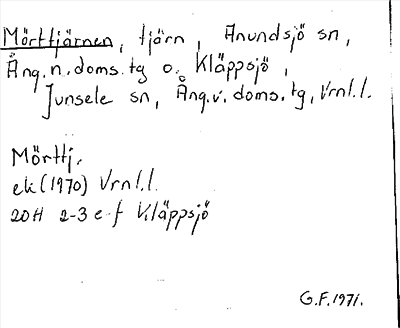 Mörttjärnen, tjärn, Anundsjö sn,
Ång.n.doms.tg o. Kläppsjö,
Junsele sn, Ång.v.doms.tg, Vrnl.l.
Mörttj.
ek(1970) Vrnl.l.
20H 2-3 e-f Kläppsjö
G.F.1971.